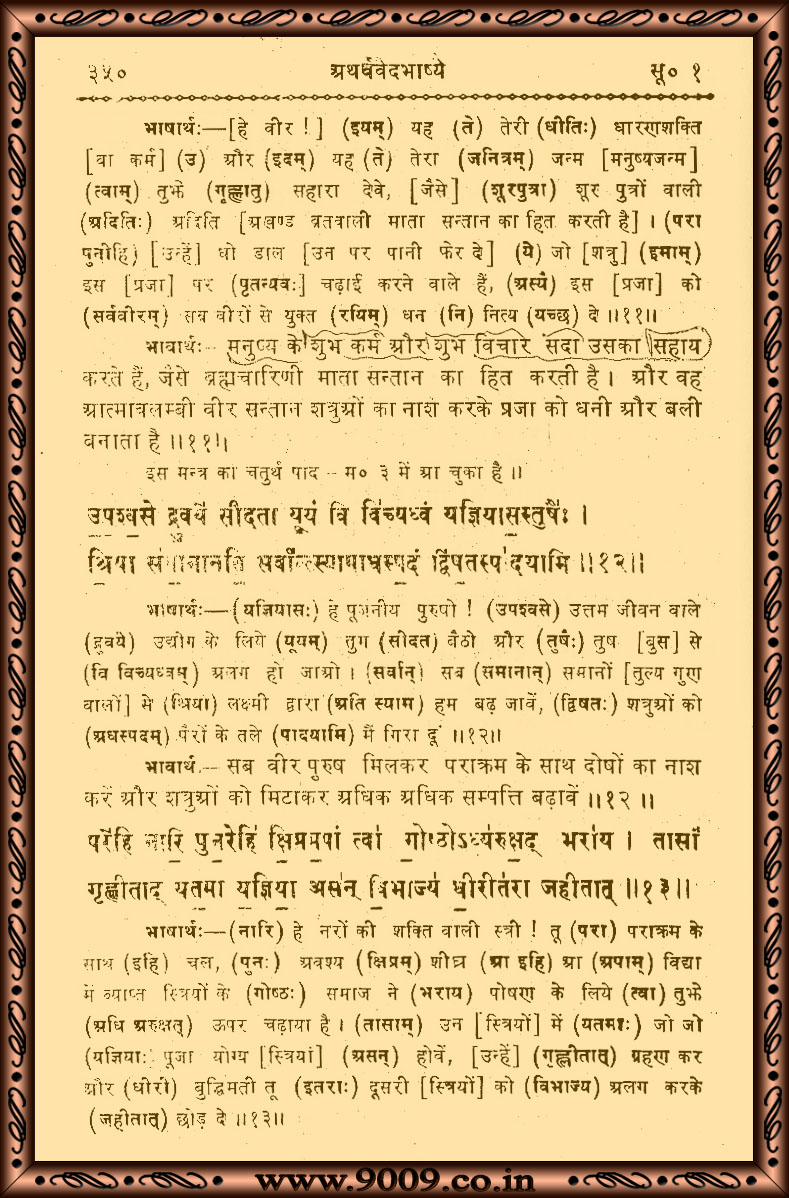 ३५० अथर्ववेदभाष्ये सू० १
भाषार्थः—[हे वीर !] (इयम्) यह (ते) तेरी (धीतिः) धारणशक्ति
[वा कर्म] (उ) और (इदम्) यह (ते) तेरा (जनित्रम्) जन्म [मनुष्यजन्म]
(त्वाम्) तुझे (गृह्णातु) सहारा देवे, [जैसे] (शूरपुत्रा) शूर पुत्रों वाली
(अदितिः) अदिति [अखण्ड व्रतवाली माता सन्तान का हित करती है] । (परा
पुनीहि) [उन्हें] धो डाल [उन पर पानी फेर दे] (ये) जो [शत्रु] (इमाम्)
इस [प्रजा] पर (पृतन्यवः] चढ़ाई करने वाले हैं, (अस्यै) इस [प्रजा] को
(सर्ववीरम्) सब वीरों से युक्त (रयिम्) धन (नि) नित्य (यच्छ) दे ॥११॥
भावार्थः-- मनुष्य के शुभ कर्म और शुभ विचार सदा उसका सहाय
करते हैं, जैसे ब्रह्मचारिणी माता सन्तान का हित करती है । और वह
आत्मावलम्बी वीर सन्तान शत्रुओं का नाश करके प्रजा को धनी और बली
बनाता है ॥११॥
इस मन्त्र का चतुर्थ पाद -- म० ३ में आ चुका है ॥
उपश्वसे द्रुवये सीदता यूयं वि विच्यध्वं यज्ञियासस्तुषैः ।
श्रिया समानानति सर्वान्त्स्यामाधस्पदं द्विषतस्पादयामि ॥१२॥
भाषार्थः—(यज्ञियासः) हे पूजनीय पुरुषो ! (उपश्वसे) उत्तम जीवन वाले
(द्रुवये) उद्योग के लिये (यूयम्) तुम (सीदत) बैठो और (तुषैः) तुष [बुस] से
(वि विच्यध्वम्) अलग हो जाओ । (सर्वान्) सब (समानान्) समानों [तुल्य गुण
वालों] से (श्रिया) लक्ष्मी द्वारा (अति स्याम) हम बढ़ जावें, (द्विषतः) शत्रुओं को
(अधस्पदम्) पैरों के तले (पादयामि) मैं गिरा दूं ॥१२॥
भावार्थ -- सब वीर पुरुष मिलकर पराक्रम के साथ दोषों का नाश
करें और शत्रुओं को मिटाकर अधिक अधिक सम्पत्ति बढ़ावें ॥१२ ॥
परेहि नारि पुनरेहि क्षिप्रमपां त्वा गोष्ठोऽध्यरुक्षद् भराय । तासां
गृह्णीताद् यतमा यज्ञिया असन् विभाज्य धीरीतरा जहीतात् ॥१३॥
भाषार्थः—(नारि) हे नरों की शक्ति वाली स्त्री ! तू (परा) पराक्रम के
साथ (इहि) चल, (पुनः) अवश्य (क्षिप्रम्) शीघ्र (आ इहि) आ (अपाम्) विद्या
में व्याप्त स्त्रियों के (गोष्ठः) समाज ने (भराय) पोषण के लिये (त्वा) तुझे
(अधि अरुक्षत्) ऊपर चढ़ाया है । (तासाम्) उन [स्त्रियों] में (यतमाः) जो जो
(यज्ञियाः) पूजा योग्य [स्त्रियां] (असन्) होवें, [उन्हें] (गृह्णीतात्) ग्रहण कर
और (धीरी) बुद्धिमती तू (इतराः) दूसरी [स्त्रियों] को (विभाज्य) अलग करके
(जहीतात्) छोड़ दे ॥१३॥
www.9009.co.in